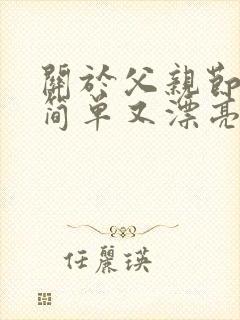 關於父親節
简单又漂亮
任麗瑛